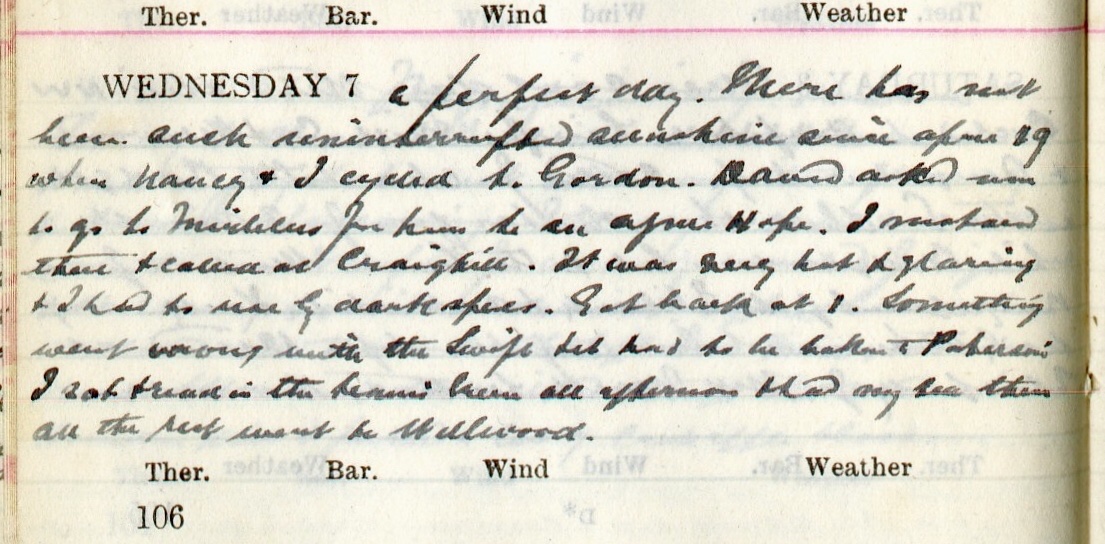 Ther. Bar. Wind Weather
WEDNESDAY 7 a perfect day. There has not
been such uninterrupted sunshine since april 19
when Nancy & I cycled to Gordon. David asked me
to go to for him to see Hope. I motored
there & called at Craighill. It was very hot & glaring
& I had to use dark specs. Got back at 1. Something
went wrong with the Swift & it had to be taken to
I sat & read in the tennis green all afternoon & had my tea there
all the rest went to Wellwood.
Ther. Bar. Wind Weather
106